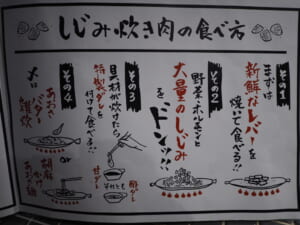 しじみ炊き肉の食べ方
その1
まずは
新鮮なレバーを
焼いて食べる!!
その2
野菜・ホルモンと
大量のしじみ
を〝ドンッ!!〟
その3
具材が炊けたら
特製ダレを
付けて食べる!!
甘ダレ
それとも
酢ダレ
その4
〆に
あおさ
バター
雑炊
or
胡麻
かけ
あおさ麺